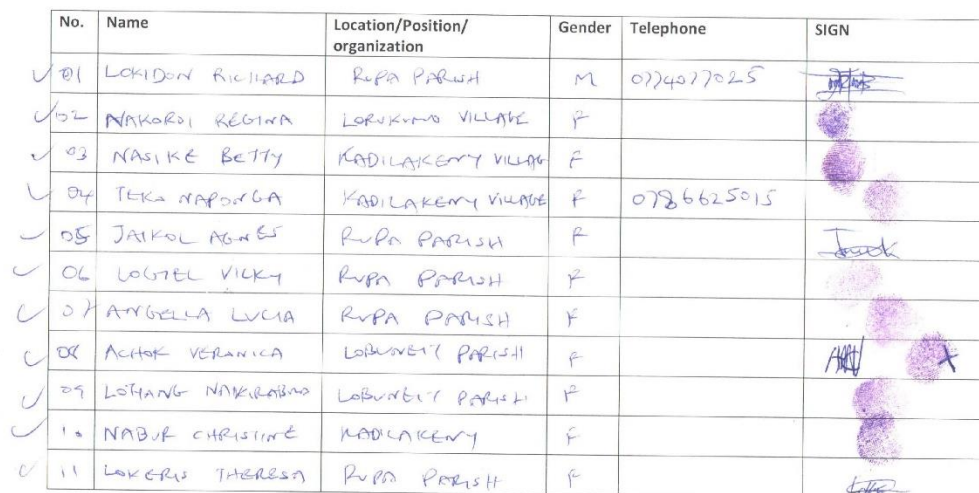 No. Name Location/Position/ organization Gender Telephone SIGN
01 LOKIDON RICHARD RUPA PARISH M 0774077025
02 NAKOROI REGINA LORUKUMO VILLAGE F
03 NASIKE BETTY KADILAKENY VILLAGE F
04 TEKO NAPONGA KADILAKENY VILLAGE F 0786625015
05 JAIKOL AGNES RUPA PARISH F
06 VICKY RUPA PARISH F
07 ANGELLA LUCIA RUPA PARISH F
08 ACHOK VERONICA LOBUNEIT PARISH F
09 LOBUNEIT PARISH F
10 NABUR CHRISTINE KADILAKENY F
11 LOKERIS THERESA RUPA PARISH F